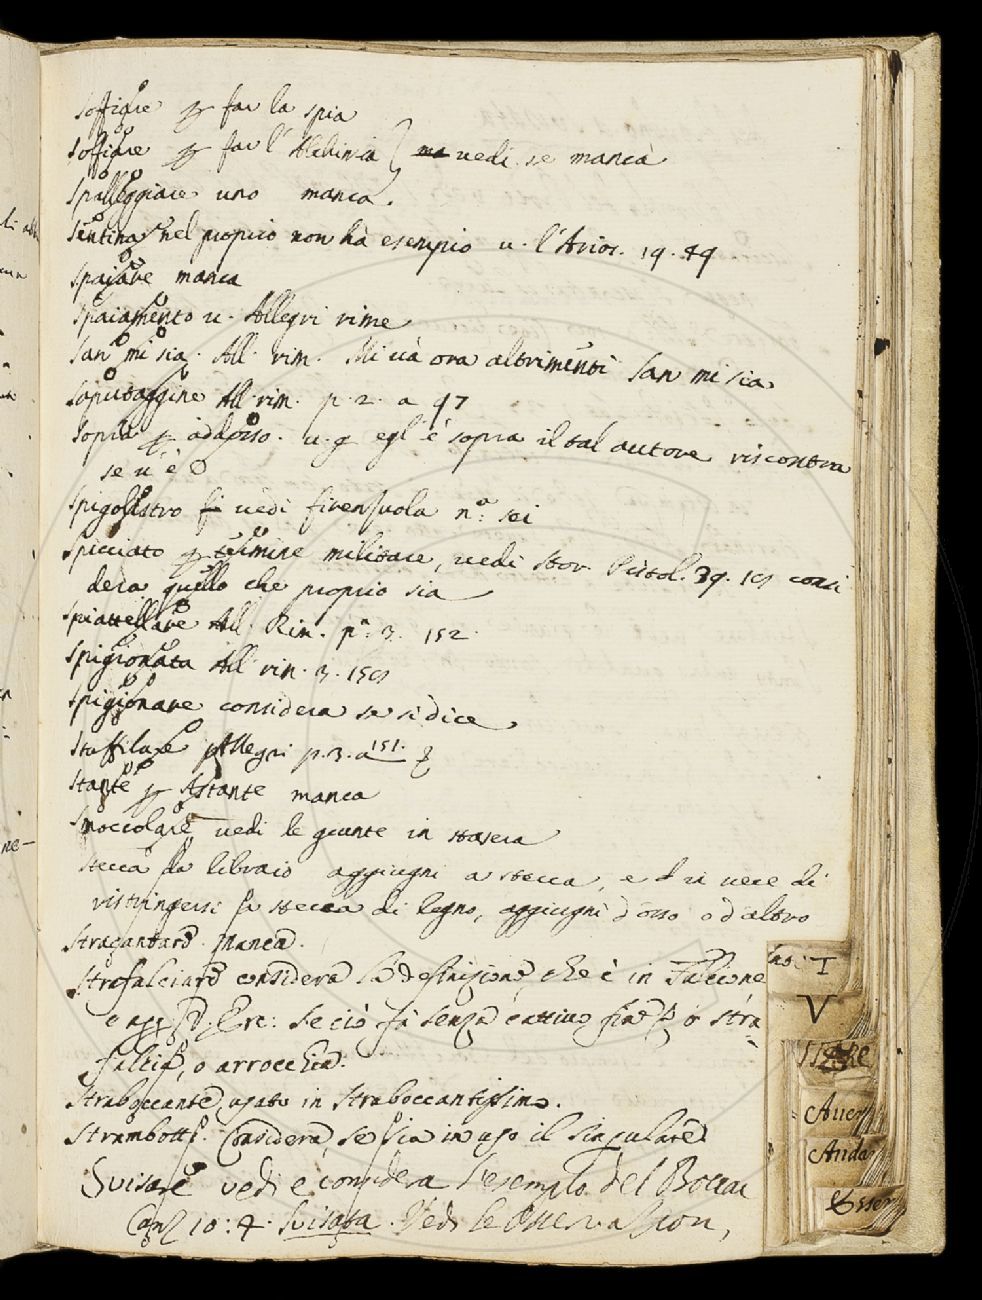 Soffiare p far la spia
Soffiare p far l'Alchimia } vedi se manca
Spalleggiare uno manca.
Sentina nel proprio non ha esempio v. l'Arios. 19. 44
Spaiare manca
Spaiamento v. Allegri rime
San mi sia. All. rim. Mi và ora altrimenti San mi sia
Saputaggine All. rim. p. 2. a 47
Sopra p adosso. v. g. egl'è sopra il tal autore riscontra
se v'è
Spigolistro vedi firenzuola n.º sei
Spicciato p termine militare, vedi Stor. Pistol. 39. 19 consi
dera quello che proprio sia
Spiattellare All. Rim. p.ª 3. 152.
Spigionata All. rim. 3. 159
Spigionare considera se si dice
Staffilare Allegri p. 3. a 151.
Stante p Astante manca
Smoccolare vedi le giunte in stasera
Stecca da libraio aggiugni a stecca, e d in vece di
ristringersi a stecca di legno, aggiugni d'osso o d'altro
manca.
Strafalciare considera la Definizione, che è in Falcione
Se ciò fà senza stra
falcia, o arrocchia.
Straboccante, usato in Straboccantissimo.
Strambotti. Considera, se sia in uso il singulare
Svisare vedi e considera l'esempio del Boccac
Canz 10: 4. Svisata. Vedi le Osservazion,
T
V
Auer
Anda
Esser